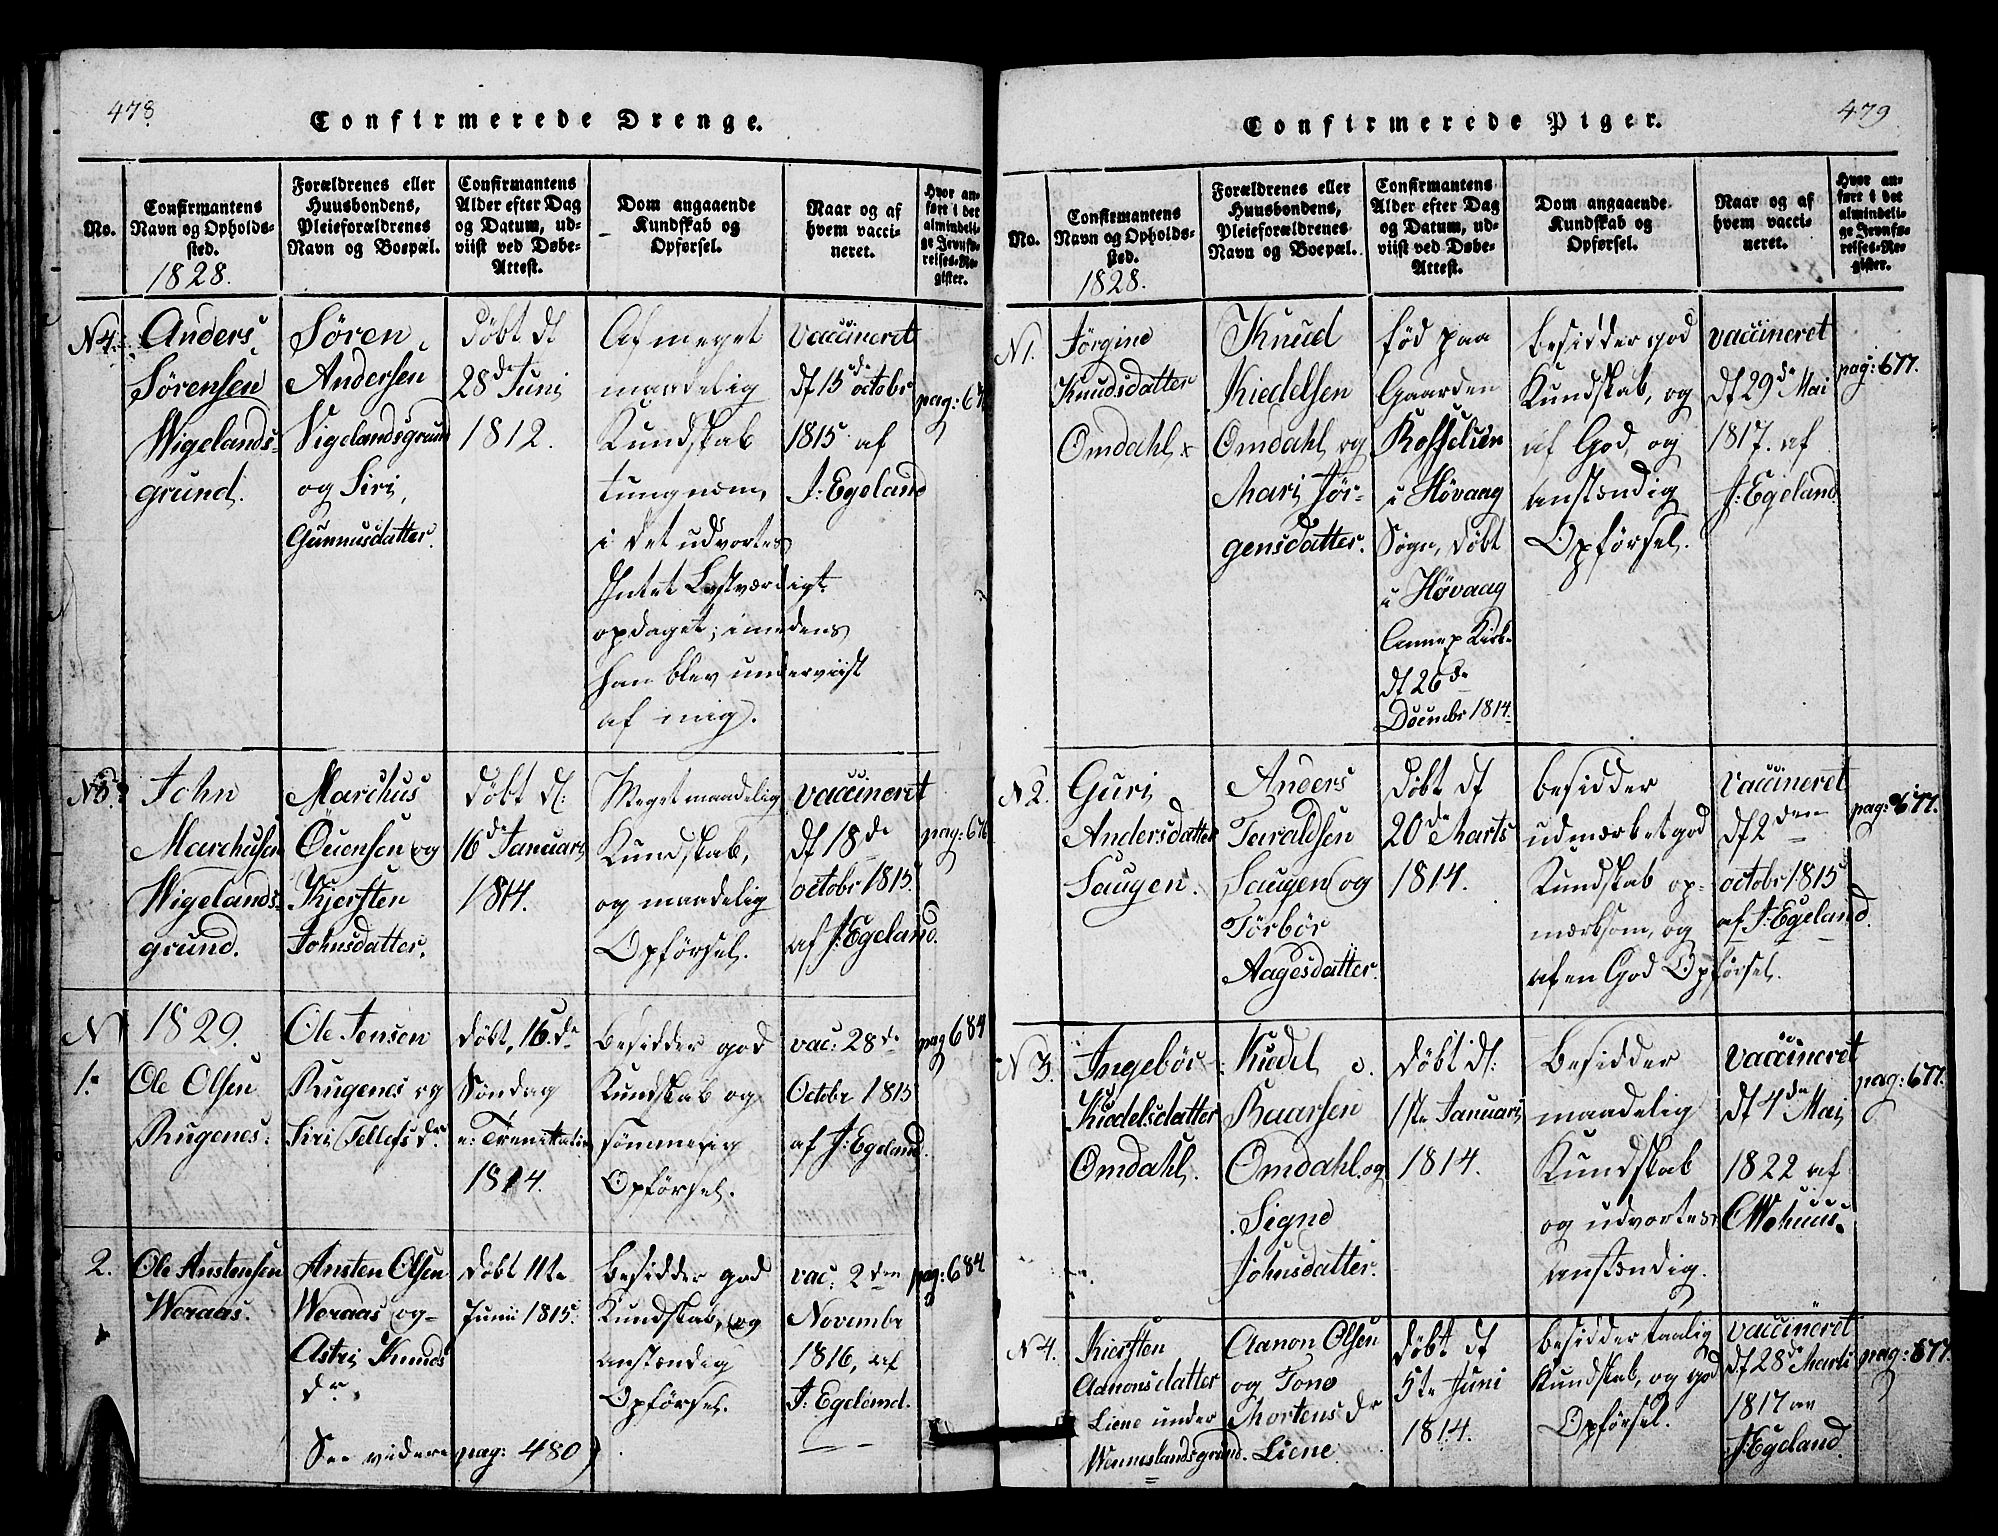 478.
Confirmerede Drenge.
No.
Confirmantens
Navn og Opholds-
sted.
1828.
Forældrenes eller
Huusbondens,
Pleieforældrenes
Navn og Boepæl.
Confirmantens
Alder efter Dag
og Datum, ud-
viist ved Døbe-
Attest.
Dom angaaende
Kundskab og
Opførsel.
Naar og af
hvem vacci-
neret.
Hvor an-
ført i det
almindeli-
ge Jevnfø-
relses-Re-
gister.
N4.
Anders
Sørensen
Wigelands-
grund.
Søren
Andersen
Vigelandsgrund
og Siri
Gunnusdatter.
døbt d
28de Juni
1812.
Af meget
maadelig
Kundskab
tungnem,
i det udvortes
Intet Lastværdigt
opdaget; imedens
han blev underviist
af mig.
vaccineret
df 15de octobr
1815 af
J: Egeland
pag: 67
N5
John
Marchusen
Wigelands-
grund.
Marchus
Ouensen og
Kjersten
Johnsdatter.
døbt d:
16de Januari
1814.
Meget maadelig
Kundskab,
og maadelig
Opførsel.
vaccineret
df 18de
octobr 1815.
af J: Egeland.
pag: 676
N
1.
1829.
Ole Olsen
Rugenes.
Ole Jensen
Rugenes og
Siri Tellefs dr.
døbt, 16de
Søndag
e: Trenitatis
1814.
Besidder god
Kundskab og
sømmelig
Opførsel.
vac: 28de
Octobr 1815
af J: Egeland.
pag 684
2.
Ole Anstensen
Weraas.
Ansten Olsen
Weraas og
Astri Knuds
dr.
døbt 11te
Junii 1815.
besidder god
Kundskab, og
anstændig
Opførsel.
vac: 2den
November
1816, af
J: Egeland.
pag: 684
See videre pag: 480)
479
Confirmerede Piger.
No.
Confirmantens
Navn og Opholds-
sted.
1828.
Forældrenes eller
Huusbondens,
Pleieforældrenes
Navn og Boepæl.
Confirmantens
Alder efter Dag
og Datum, ud-
viist ved Døbe-
Attest.
Dom angaaende
Kundskab og
Opførsel.
Naar og af
hvem vacci-
neret.
Hvor an-
ført i det
almindeli-
ge Jevnfø-
relses-Re-
gister.
N1.
Jørgine
Knudsdatter
Omdahl
Knud
Kiedelsen
Omdahl og
Mari Jør-
gensdatter.
fød paa
Gaarden
Kosselien
i Høvaag
Sogn, døbt
i Høvaag
Annex Kirke
df 26de
Decembr 1814.
besidder god
Kundskab, og
af God, og
anstændig
Opførsel.
vaccineret
df 29de Mai
1817. af
J: Egeland
pag: 677.
N2.
Guri
Andersdatter
Saugen.
Anders
Taraldsen
Saugen og
Törbör
Aagesdatter.
døbt df
20de Marts
1814.
besidder
udmærket god
Kundskab op-
mærksom, og
af en God Opførsel.
vaccineret
df 2den
octobr 1815
af J: Egeland.
pag: 677.
N3.
Ingebör
Kiedelsdatter
Omdahl.
Kiedel
Baarsen
Omdahl og
Signe
Johnsdatter.
døbt d:
1ste Januari
1814.
Besidder
maadelig
Kundskab
og udvortes
anstændig.
vaccineret
df 4de Mai
1822 af
pag: 677.
N4.
Kiersten
Aanonsdatter
Liene under
Wenneslandsgrund.
Aanon Olsen
og Tone
Mortens dr
Liene.
døbt df
5te Juni
1814.
besidder taalig
Kundskab, og god
Opførsel.
vaccineret
df 28de Marts
1817 af
J: Egeland.
pag: 677.